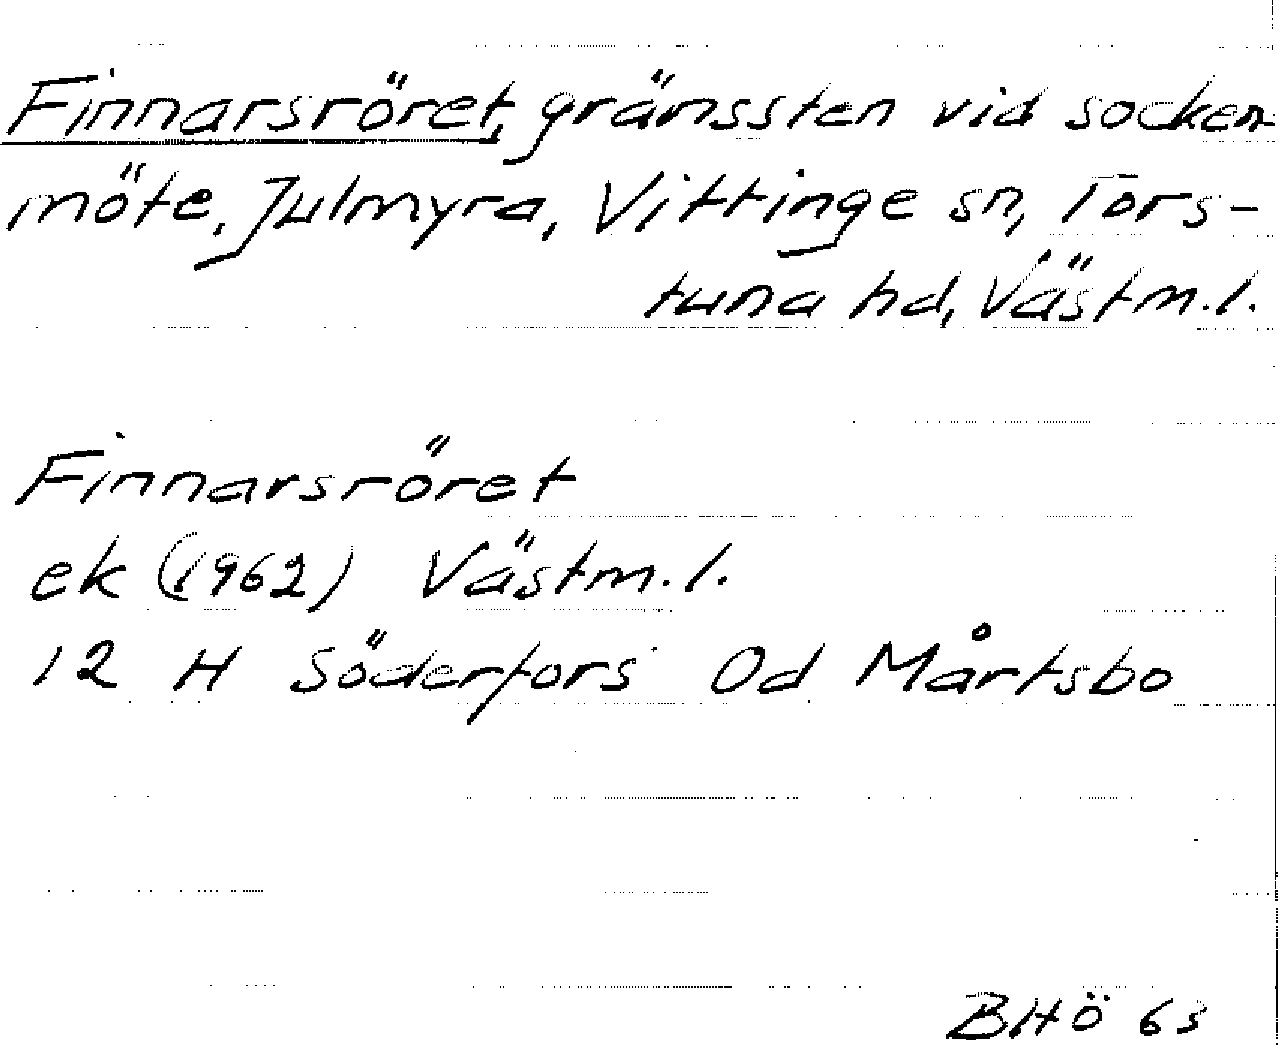 Finnarsröret, gränssten vid socken-
möte, Julmyra, Vittinge sn, Tors-
tuna hd, Västm.l.
Finnarsröret
ek (1962) Västm.l.
12 H Söderfors 0d Mårtsbo
BHÖ 63